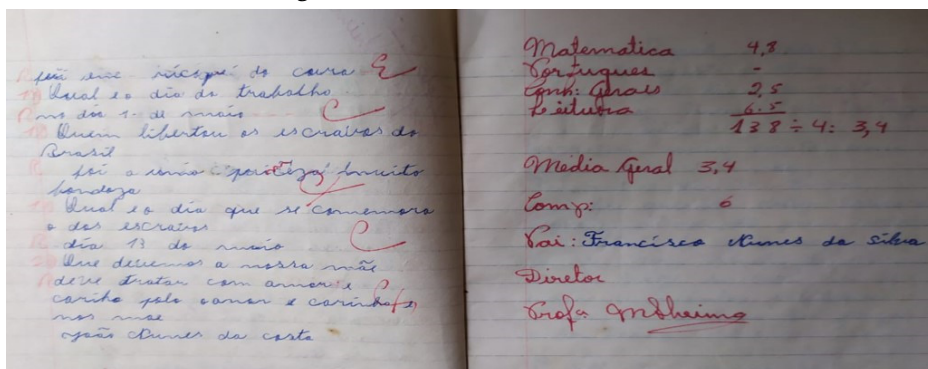 foi eme da coura E
Qual e o dia do trabalho
R no dia 1- de maio C
Quem libertou os escraivos do
Brasil
foi a muito
bondoza
Qual e o dia que se comemora
o dos escraivos
R dia 13 do maio C
Que devemos a nossa mãe
R deve tratar com amor e
cariho pelo e carinho
nos mae
João Nunes da costa
Matematica 4,8
Portugues -
Conh: Gerais 2,5
Leitura 6.5
138 ÷ 4: 3,4
Média Geral 3,4
Comp: 6
Pai: Francisco Nunes da Silva
Diretor
Profa